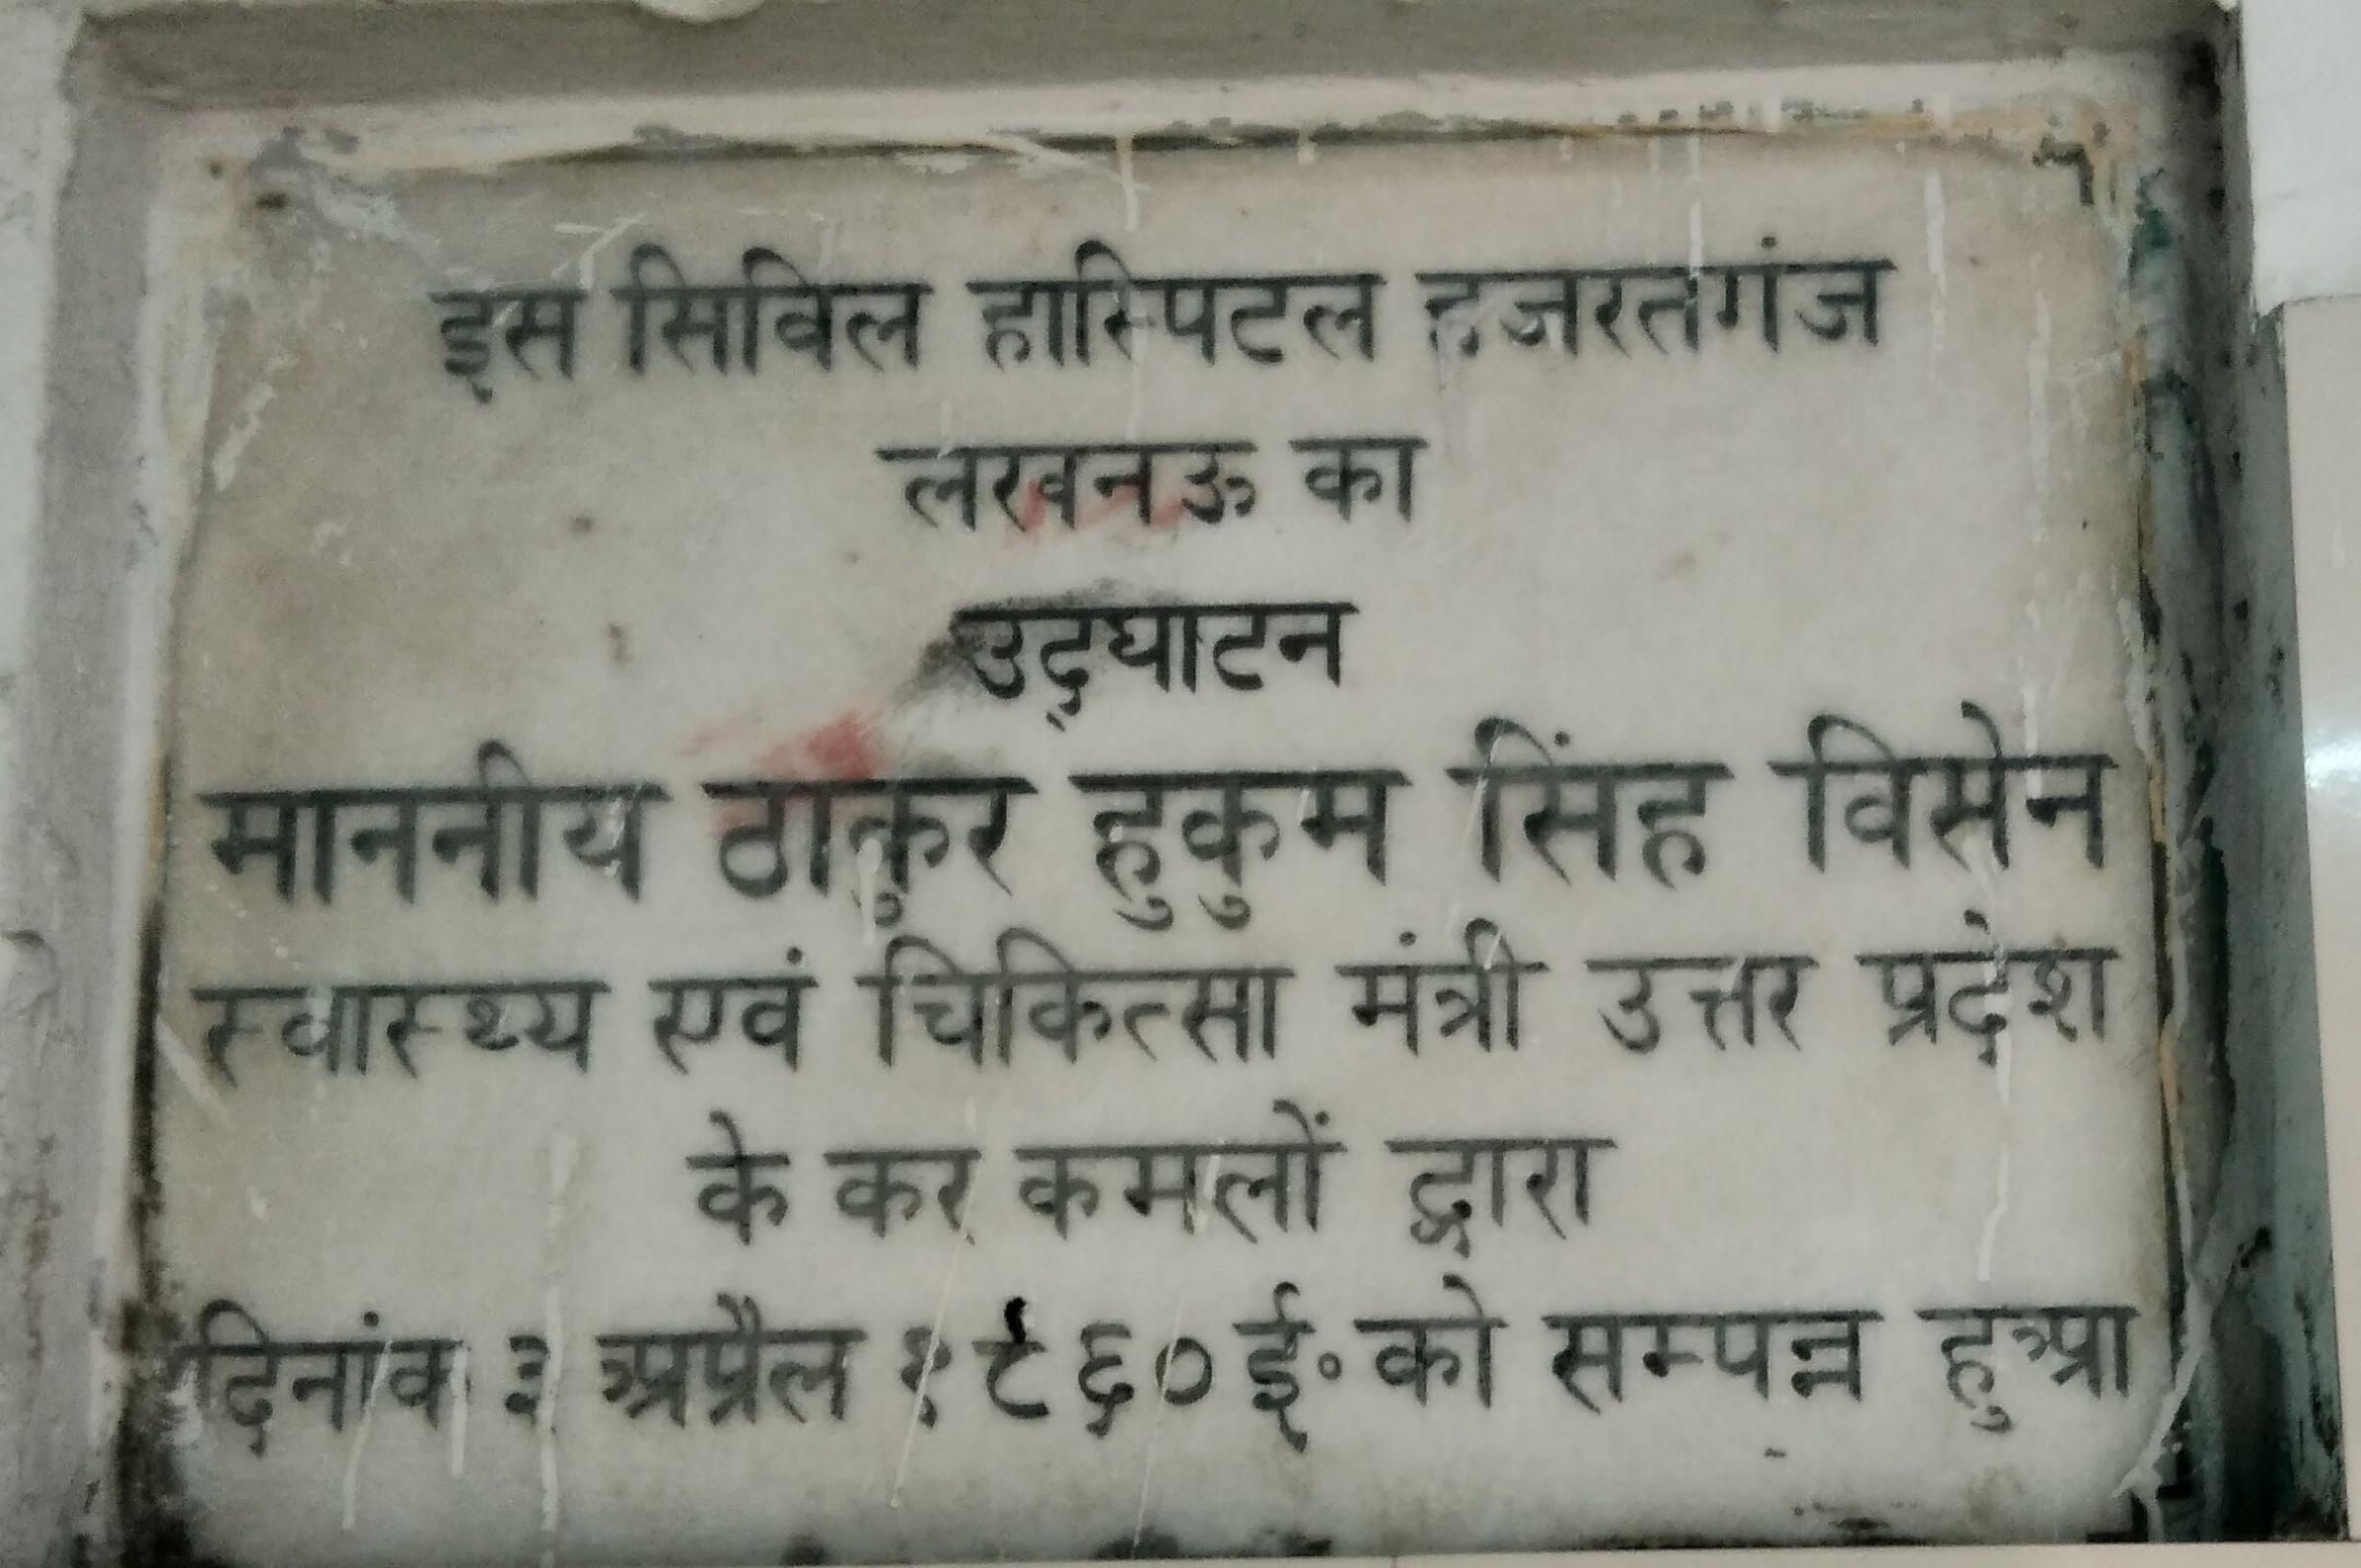 इस सिविल हास्पिटल हजरतगंज
लखनऊ का
उद्घाटन
माननीय ठाकुर हुकुम सिंह विसेन
स्वास्थ्य एवं चिकित्सा मंत्री उत्तर प्रदेश
के कर कमलों द्वारा
दिनांक ३ अप्रैल १९६० ई॰ को सम्पन्न हुआ